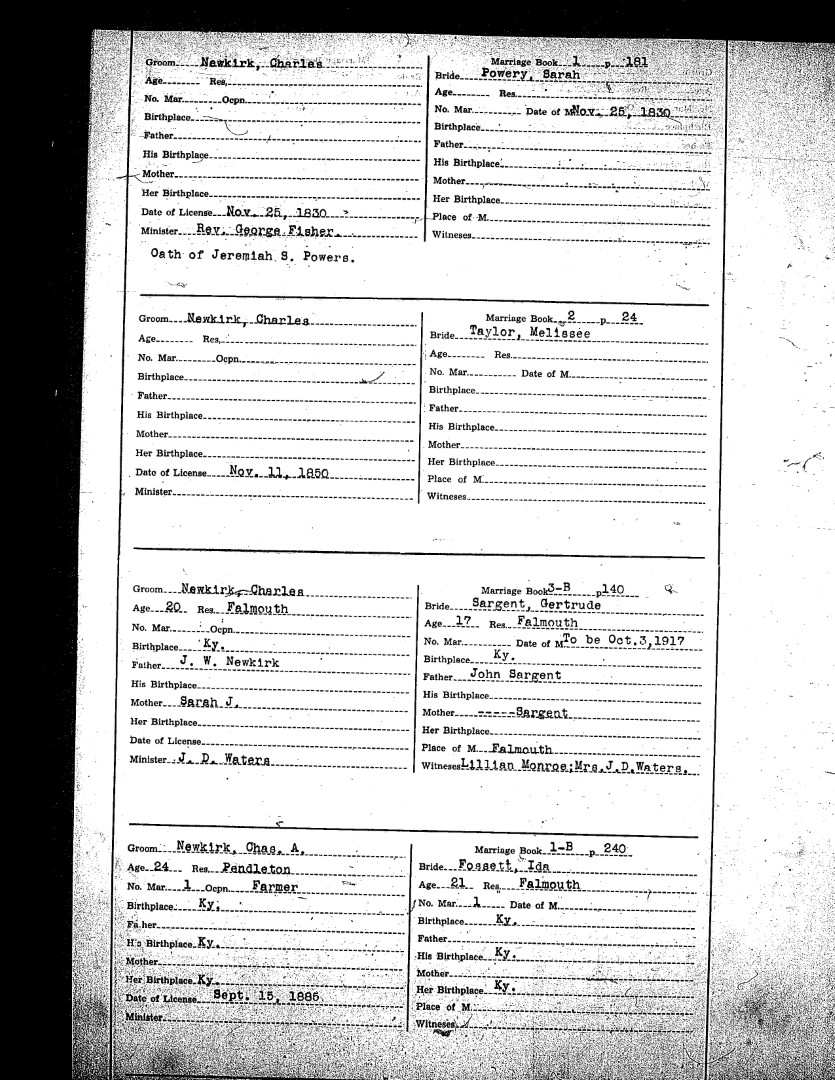 Groom Newkirk, Charles
Age Res.
No. Mar. Ocpn.
Birthplace
Father
His Birthplace
Mother
Her Birthplace
Date of License Nov. 25, 1830
Minister Rev. George Fisher.
Oath of Jeremiah S. Powers.
Marriage Book 1 p 181
Bride Powery, Sarah
Age Res.
No. Mar. Date of M Nov. 25, 1830
Birthplace
Father
His Birthplace
Mother
Her Birthplace
Place of M.
Witnesses
Groom Newkirk, Charles
Age Res.
No. Mar. Ocpn.
Birthplace
Father
His Birthplace
Mother
Her Birthplace
Date of License Nov. 11, 1850
Minister
Marriage Book 2 p 24
Bride Taylor, Melissee
Age Res.
No. Mar. Date of M.
Birthplace
Father
His Birthplace
Mother
Her Birthplace
Place of M.
Witnesses
Groom Newkirk, Charles
Age 20 Res. Falmouth
No. Mar. Ocpn.
Birthplace Ky.
Father J. W. Newkirk
His Birthplace
Mother Sarah J.
Her Birthplace
Date of License
Minister J. D. Waters
Marriage Book 3-B p 140
Bride Sargent, Gertrude
Age 17 Res. Falmouth
No. Mar. Date of M To be Oct.3,1917
Birthplace Ky.
Father John Sargent
His Birthplace
Mother -----Sargent
Her Birthplace
Place of M. Falmouth
Witnesses Lillian Monroe;Mrs.J.D.Waters.
Groom Newkirk, Chas. A.
Age 24 Res. Pendleton
No. Mar. 1 Ocpn. Farmer
Birthplace Ky.
Father
His Birthplace Ky.
Mother
Her Birthplace Ky.
Date of License Sept. 15, 1885
Minister
Marriage Book 1-B p 240
Bride Fossett, Ida
Age 21 Res. Falmouth
No. Mar. 1 Date of M.
Birthplace Ky.
Father
His Birthplace Ky.
Mother
Her Birthplace Ky.
Place of M.
Witnesses